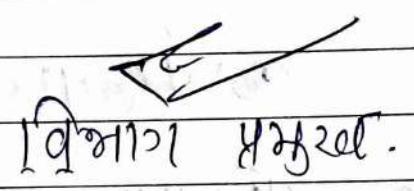 विभाग प्रमुख.